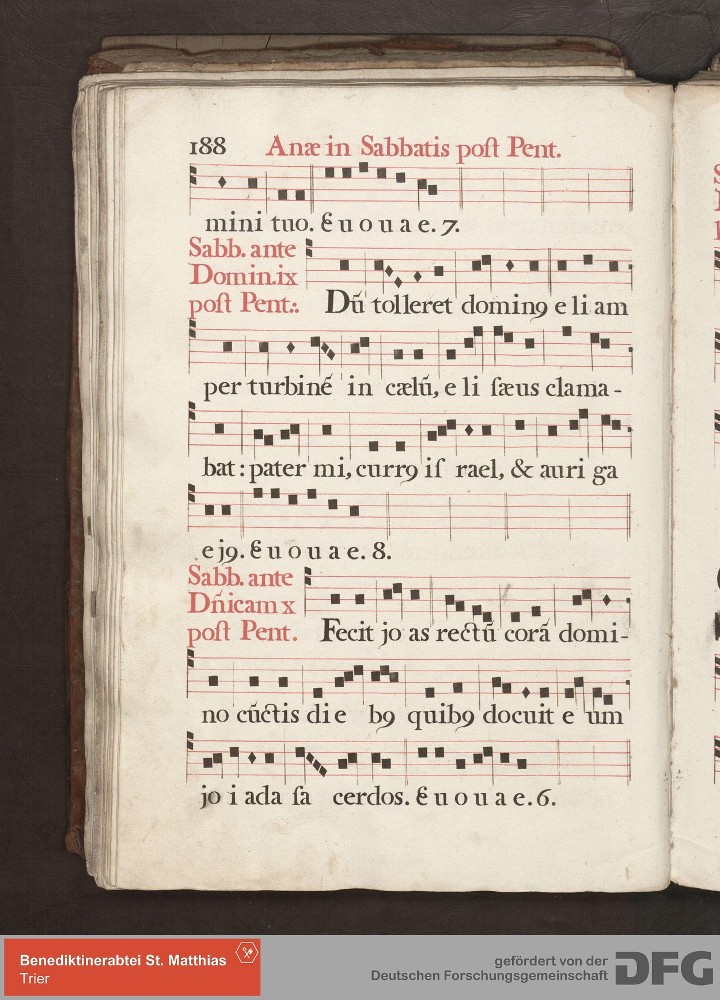 188 Anæ in Sabbatis poſt Pent.
mini tuo. E u o u a e. 7.
Sabb. ante
Domin. ix
poſt Pent:.
Dū tolleret domin9 e li am
per turbinē in cælū, e li ſæus clama-
bat: pater mi, curr9 iſ rael, & auri ga
ej9. E u o u a e. 8.
Sabb. ante
Dn̄icam x
poſt Pent.
Fecit jo as rectū corā domi-
no cūctis die b9 quib9 docuit e um
jo i ada ſa cerdos. E u o u a e. 6.
Benediktinerabtei St. Matthias
Trier
gefördert von der
Deutschen Forschungsgemeinschaft
DFG